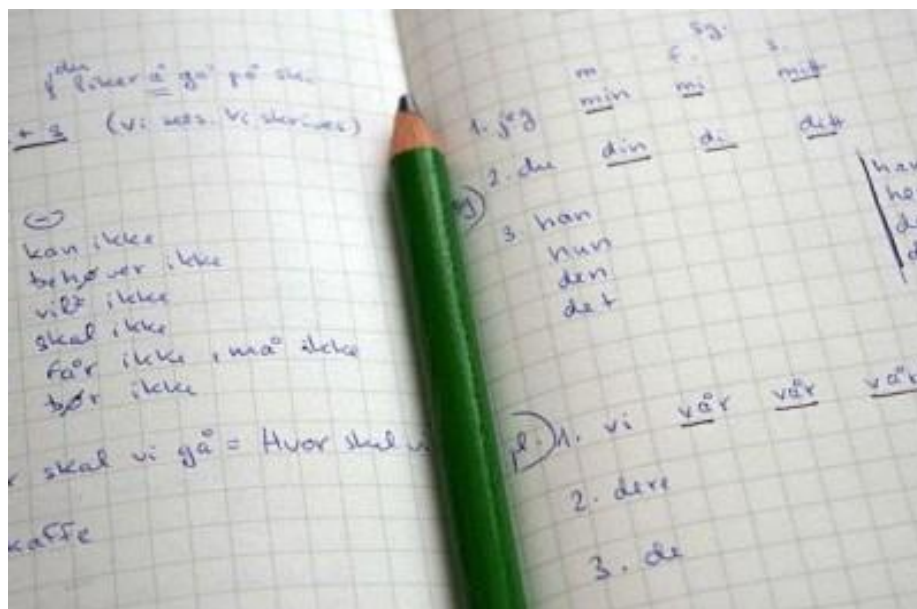 liker å gå på ski.
+ s (vi ses. Vi skrives)
(-)
kan ikke
behøver ikke
vil ikke
skal ikke
får ikke, må ikke
bør ikke
skal vi gå = Hvor skal vi
kaffe
sg.
m. f. s.
1. jeg min mi mitt
2. du din di ditt
3. han
hun
den
det
pl. 1. vi vår vår vårt
2. dere
3. de